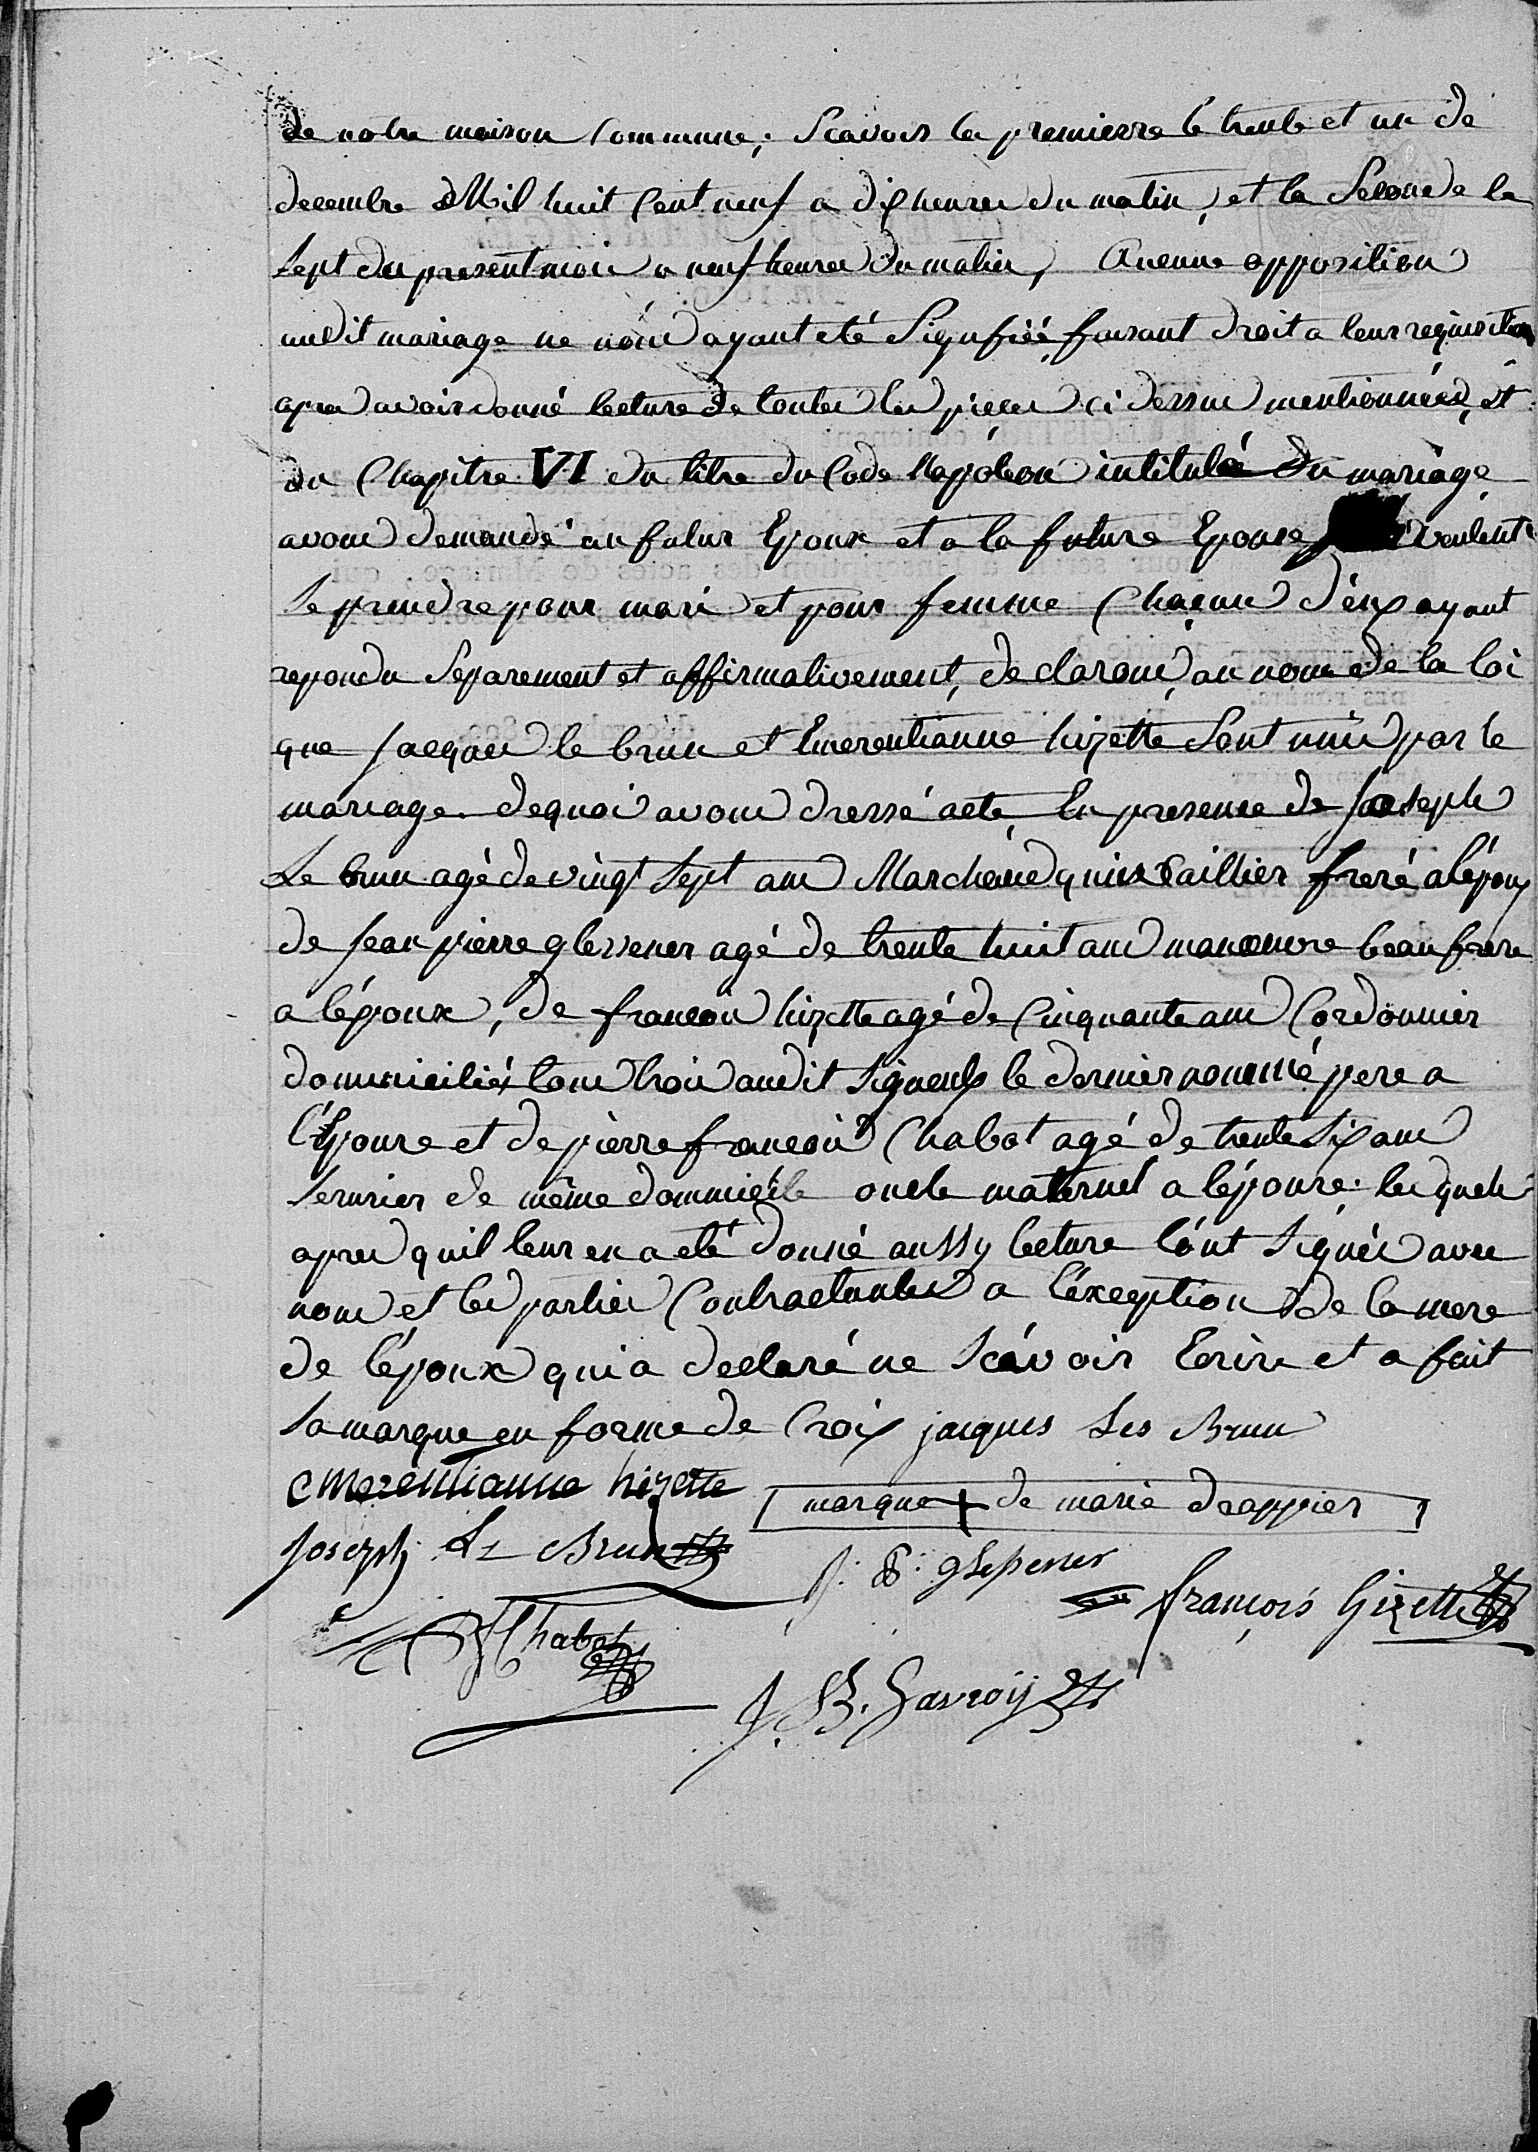 de notre maison commune; Scavoir la premierre le trente et un de
decembre Mil huit Cent neuf a dix heures du matin, et la Seconde le
sept du present mois a neuf heures du matin, Aucune opposition
audit mariage ne nous ayant eté Signifiéé, faisant droit a leur requisition
apres avoir donné lecture de toutes les pieces ci dessus mentionnées, et
du Chapitre VI du titre du Code Napoléon intitulé du mariage
avons demandé au futur Epoux et a la future Epouse veulent
se prendre pour mari et pour femme Chacun d'éux ayant
repondu Separement et affirmativement, declarons, au nom de la loi
que Jacques le brun et Emerentianne hizette Sont unis par le
mariage. dequoi avons dressé acte, En presence de Joseph
Le brun agé de vingt Sept ans Marchand quinxcaillier freré a l'époux
de Jean pierre glessener agé de trente huit ans manœuvre beau frere
a l'époux, de francois hizette agé de Cinquante ans Cordonnier
domiciliés tous trois audit Signeulx le dernier nommé pere a
l'Epouse et de pierre francois Chabot agé de trente Six ans
Serurier de même dommicile oncle maternel a l'épouse. les quels
apres quil leur en a eté donné aussy lecture l'ónt Signés avec
nous et les parties Contractantes a l'éxception de la mere
de l'époux qui a declaré ne Scávoir Ecrire et a fait
sa marque en forme de Croix jacques Les Brun
emerentianne hizette
marque + de marie drappier
Joseph Le Brun
J: P: glesener
françois hizette
Chabot
J. B. Gavroij